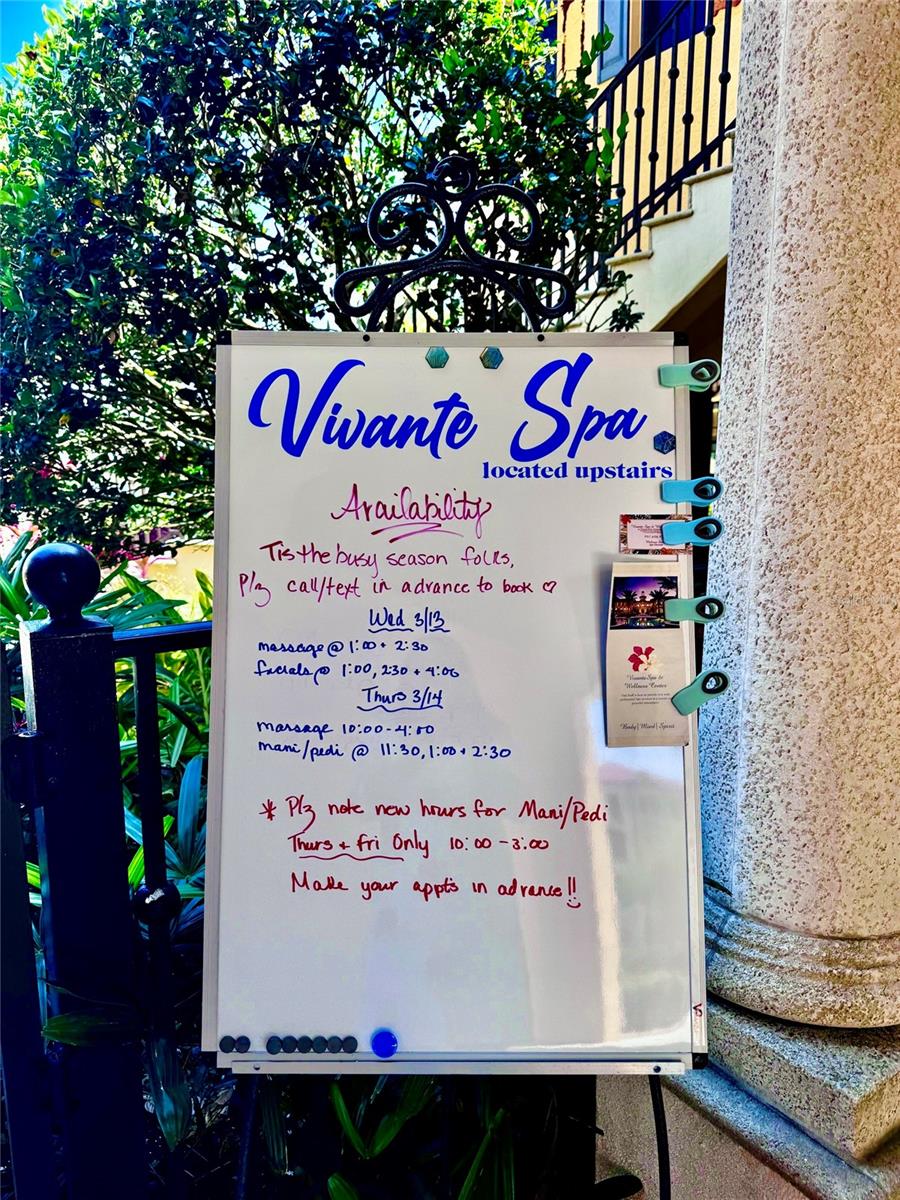 Vivante Spa
located upstairs
Availability
Tis the busy season folks,
Plz call/text in advance to book ♡
Wed 3/13
massage @ 1:00 + 2:30
facials @ 1:00, 230 + 4:00
Thurs 3/14
massage 10:00-4:00
mani/pedi @ 11:30, 1:00 + 2:30
* Plz note new hours for Mani/Pedi
Thurs + Fri Only 10:00 - 3:00
Make your appts in advance!!
Vivante Spa &
Wellness Center
Body | Mind | Spirit